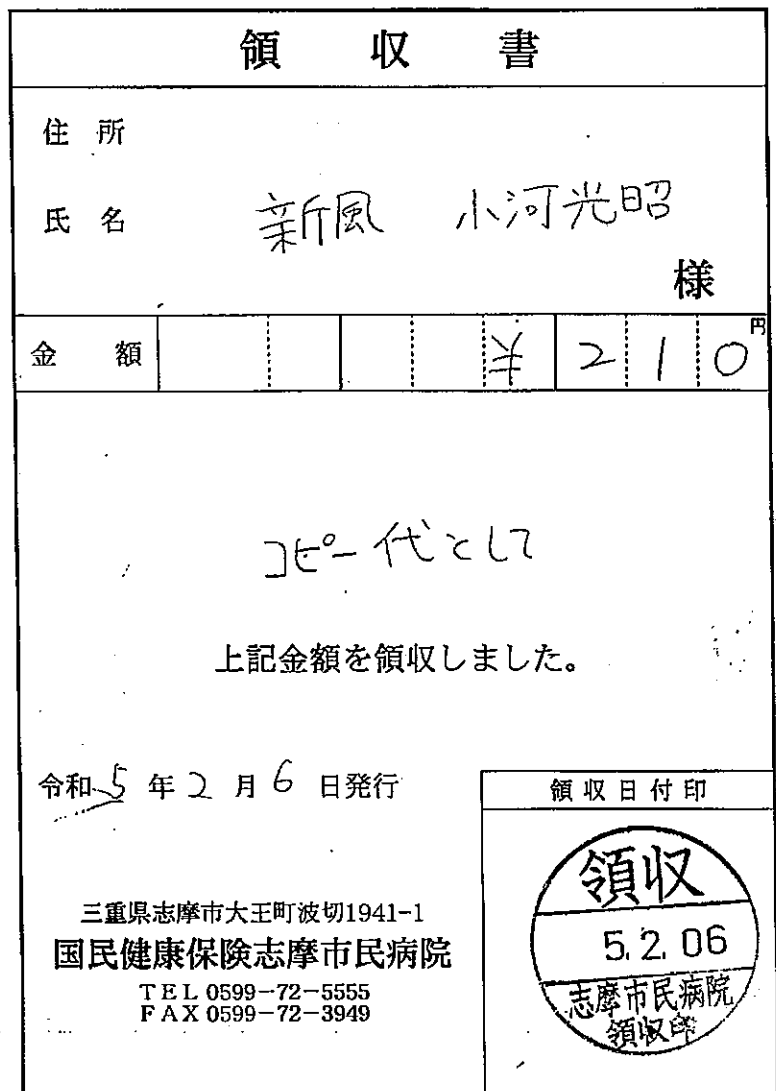 領収書
住所
氏名 新風 小河光昭
様
金額 ¥210円
コピー代として
上記金額を領収しました。
令和5年2月6日発行
領収日付印
領収
5.2.06
志摩市民病院
領収印
三重県志摩市大王町波切1941-1
国民健康保険志摩市民病院
TEL 0599-72-5555
FAX 0599-72-3949